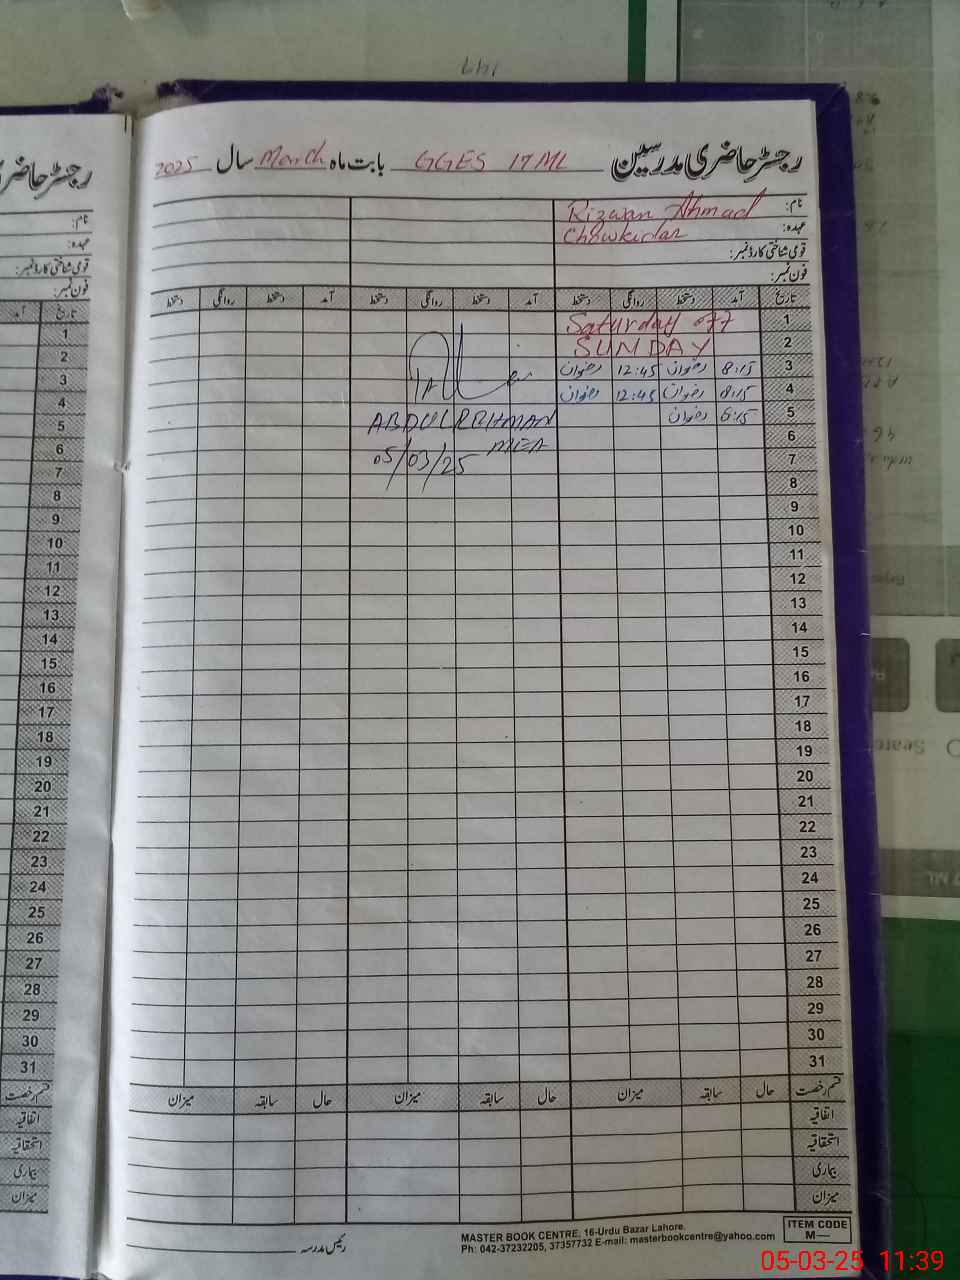 رجسٹر حاضری مدرسین GGES 17 ML بابت ماہ March سال 2025
نام: Rizwan Ahmad
عہدہ: Chowkidar
قومی شناختی کارڈ نمبر:
فون نمبر:
تاریخ آمد دستخط روانگی دستخط آمد دستخط روانگی دستخط آمد دستخط روانگی دستخط
1 Saturday off
2 SUNDAY
3 8:15 رضوان 12:45 رضوان
4 8:15 رضوان 12:45 رضوان
5 8:15 رضوان
ABDUL REHMAN
MEA
05/03/25
6
7
8
9
10
11
12
13
14
15
16
17
18
19
20
21
22
23
24
25
26
27
28
29
30
31
قسم رخصت حال سابقہ میزان حال سابقہ میزان حال سابقہ میزان
اتفاقیہ
استحقاقیہ
بیماری
میزان
رئیس مدرسہ
MASTER BOOK CENTRE, 16-Urdu Bazar Lahore.
Ph: 042-37232205, 37357732 E-mail: masterbookcentre@yahoo.com
ITEM CODE
M—
رجسٹر حاضری
نام:
عہدہ:
قومی شناختی کارڈ نمبر:
فون نمبر:
تاریخ آمد
1
2
3
4
5
6
7
8
9
10
11
12
13
14
15
16
17
18
19
20
21
22
23
24
25
26
27
28
29
30
31
قسم رخصت
اتفاقیہ
استحقاقیہ
بیماری
میزان
05-03-25 11:39